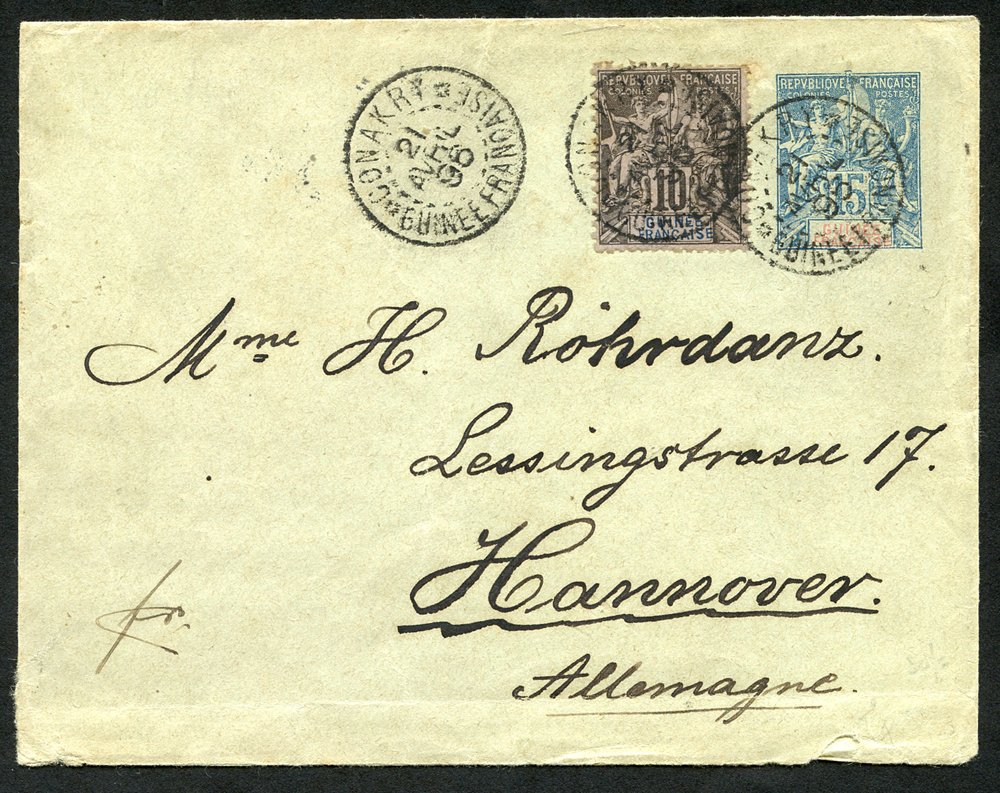 CONAKRY
21
AVRIL
95
GUINEE FRANÇAISE
REPVBLIQVE FRANÇAISE
COLONIES
10
GUINÉE
FRANÇAISE
REPVBLIQVE FRANÇAISE
COLONIES POSTES
15
Mme H. Röhrdanz.
Lessingstrasse 17.
Hannover.
Allemagne.
fr.